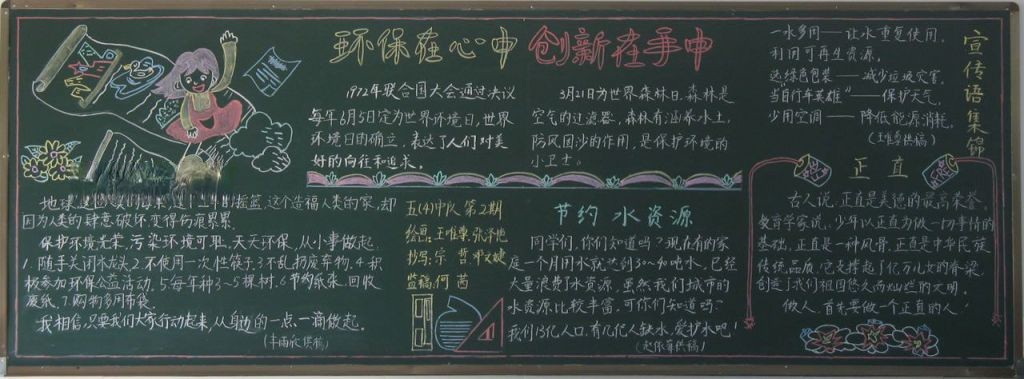 环保在心中 创新在手中
1972年联合国大会通过决议
每年6月5日定为世界环境日,世界
环境日的确立,表达了人们对美
好的向往和追求。
3月21日为世界森林日,森林是
空气的过滤器,森林有涵养水土,
防风固沙的作用,是保护环境的
小卫士。
宣传语集锦
一水多用——让水重复使用,
利用可再生资源,
选绿色包装——减少垃圾灾害,
当自行车英雄"——保护天气,
少用空调——降低能源消耗,
供稿)
地球
摇篮,这个造福人类的家,却
因为人类的肆意破坏变得伤痕累累
保护环境光荣,污染环境可耻,天天环保,从小事做起,
1.随手关闭水龙头2.不使用一次性筷子3.不乱扔废弃物,4.积
极参加环保公益活动,5.每年种3~5棵树,6节约纸张,回收
废纸,7.购物多用布袋。
我相信,只要我们大家行动起来,从身边的一点、一滴做起。
供稿)
五(4)中队 第2期
绘画:
抄写:
监稿:何茜
节约水资源
同学们,你们知道吗?现在有的家
庭一个月用水就达到30~40吨水,已经
大量浪费了水资源,虽然我们城市的
水资源比较丰富,可你们知道吗?
我们13亿人口,有几亿人缺水,爱护水吧!
供稿)
正直
古人说,正直是美德的最高荣誉,
教育学家说,少年以正直为做一切事情的
基础,正直是一种风骨,正直是中华民族
传统品质,它支撑起了亿万儿女的脊梁,
创造了我们祖国悠久而灿烂的文明,
做人,首先要做一个正直的人!